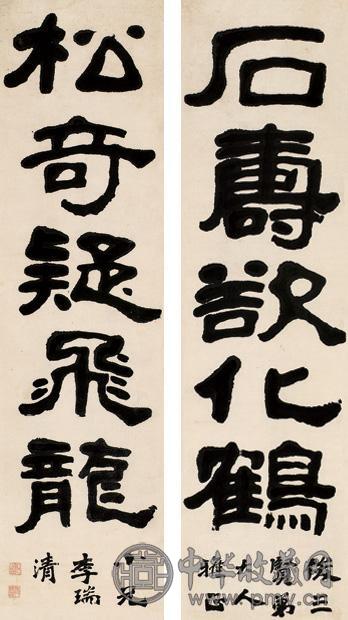 石壽欲化鶴
賢弟
大人
雅正
松奇疑飛龍
李瑞
清
中华收藏网